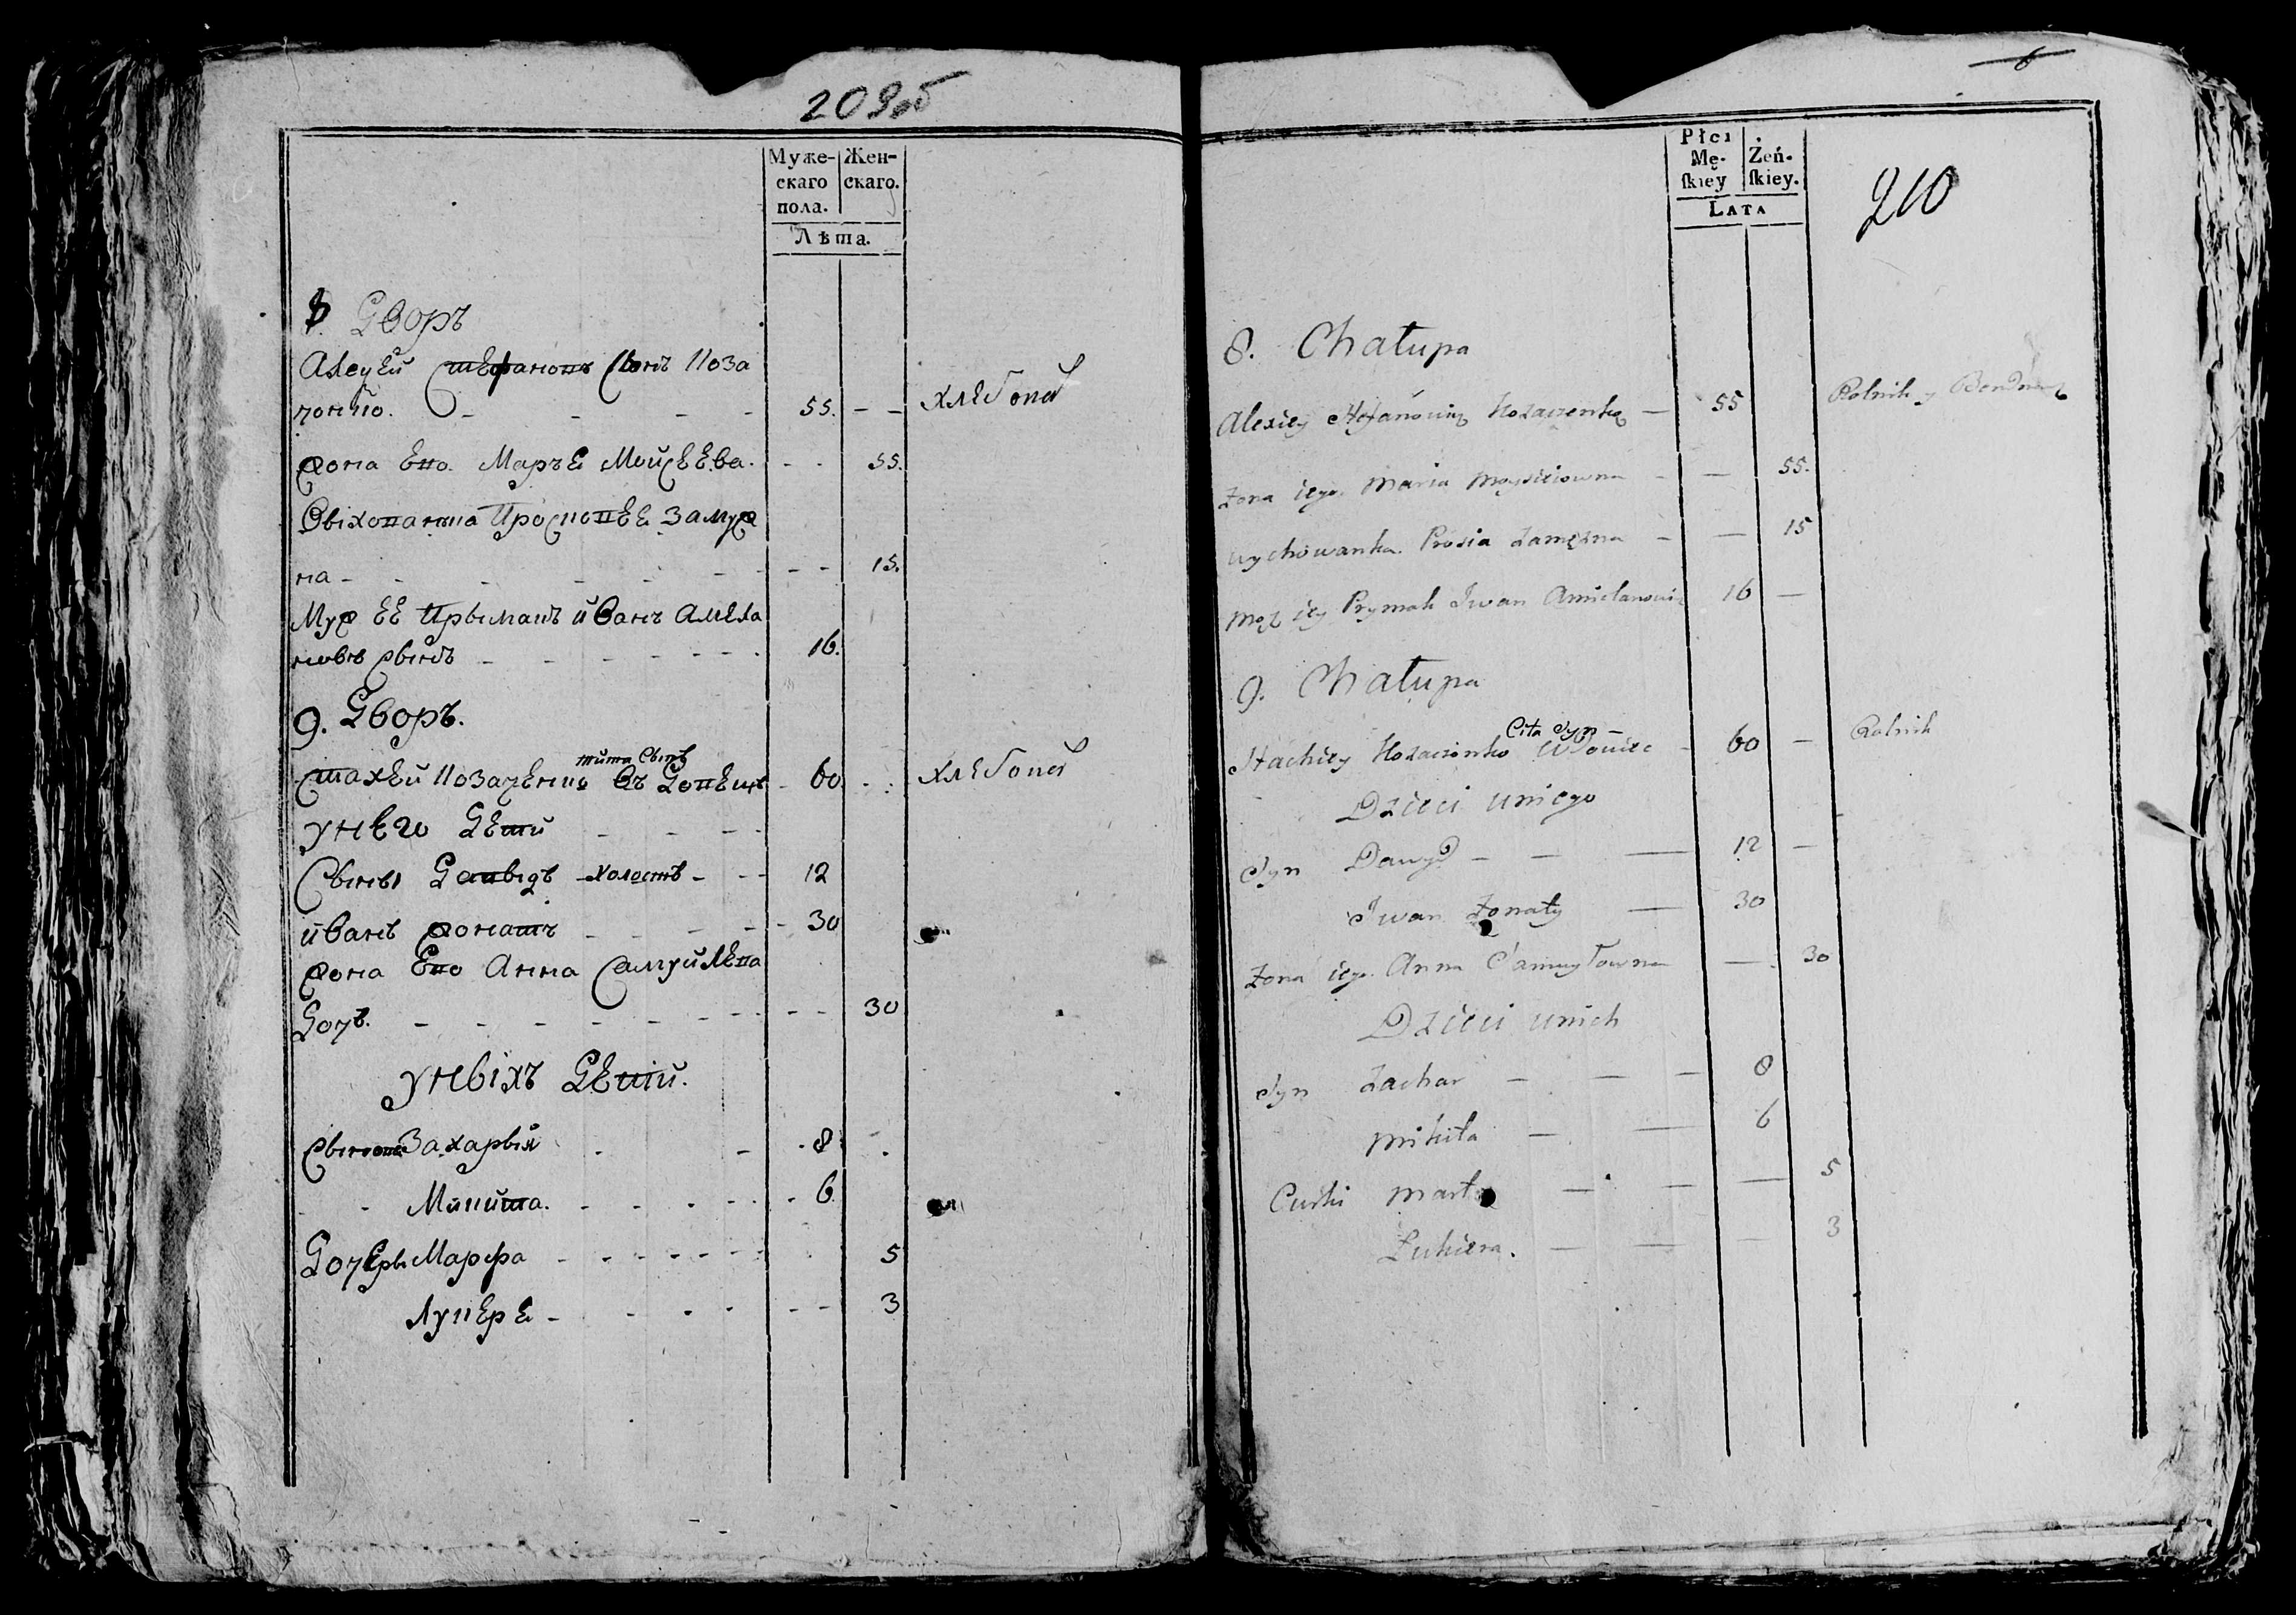 209об
Муже-
скаго
пола.
Жен-
скаго.
Лѣта.
8. Дворъ
Алецей Стефановъ Сынъ Коза
чонко. 55.
Хлебопа
Жона Его Марья Мойсеева. 55.
Выхопанка Просковея Замуж
на 15.
Муж ее Прымакъ иванъ Амела
новъ сынъ 16.
9. Дворъ.
тита Сынъ
Стахей Козаченко Въ Довецъ 60
Хлебопа
У него Дети
Сыны Давыдъ холостъ 12
иванъ жонатъ 30
Жона Его Анна Самуйлева
Дочь. 30
У ныхъ Дети.
Сыновя Захарыя 8
Микита. 6
Дочеры Марфа 5
Лукеря 3
6
210
Płci
Mę-
ſkiey
Żeń-
ſkiey.
Lata
8. Chałupa
Alexiey Stefanowicz Kozaczenko 55 Rolnik y
Żona iego Maria Moysieiowna 55.
Wychowanka Prosia Zamężna 15
Mąż iey Prymak Iwan Amielanowicz 16
9. Chałupa
Syn
Stachiey Kozaczonko Wdowiec 60 Rolnik
Dzieci uniego
Syn Dawyd 12
Iwan Żonaty 30
Żona iego Anna Samuyłowna 30
Dzieci unich
Syn Zachar 8
Mikita 6
Curki Marta 5
Łukiera. 3